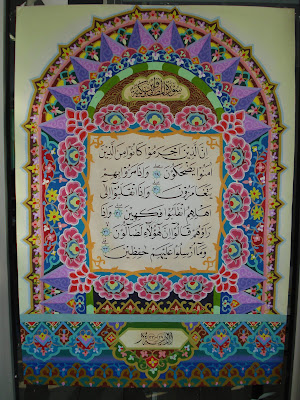 سورة المطففين
إن الذين أجرموا كانوا من الذين
ءامنوا يضحكون وإذا مروا بهم
يتغامزون وإذا انقلبوا إلى
أهلهم انقلبوا فكهين وإذا
رأوهم قالوا إن هؤلاء لضالون
وما أرسلوا عليهم حفظين